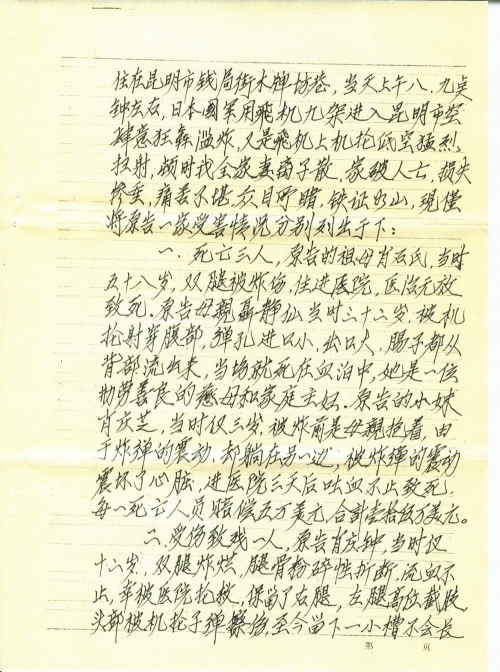 住在昆明市钱局街木牌坊巷，当天上午八、九点
钟左右，日本国军用飞机九架进入昆明市空
肆意狂轰滥炸，又是飞机上机抢低空猛烈
扫射，顿时我全家妻离子散，家破人亡，损失
惨重，痛苦不堪，众目所睹，铁证如山，现仅
将原告一家受害情况分别列出于下：
一、死亡三人，原告的祖母肖石氏，当时
五十八岁，双腿被炸伤，住进医院，医治无效
致死。原告母親聶静仙当时三十二岁，被机
抢射穿腹部，弹孔进口小，出口大，肠子都从
背部流出来，当场就死在血泊中，她是一位
勤劳善良的慈母和家庭主妇。原告的小妹
肖庆芝，当时仅三岁，被炸前是母親抱着，由
于炸弹的震动，却躺在另一边，被炸弹的震动
震坏了心脏，进医院三天后吐血不止致死，
每一死亡人员赔偿五万美元，合计壹拾伍万美元。
二、受伤致残一人，原告肖庆钟，当时仅
十二岁，双腿炸烂，腿骨粉碎性折断，流血不
止，幸被医院抢救，保留了右腿，左腿高位截肢，
头部被机抢子弹擦伤，至今留下一小槽不会长
第 页